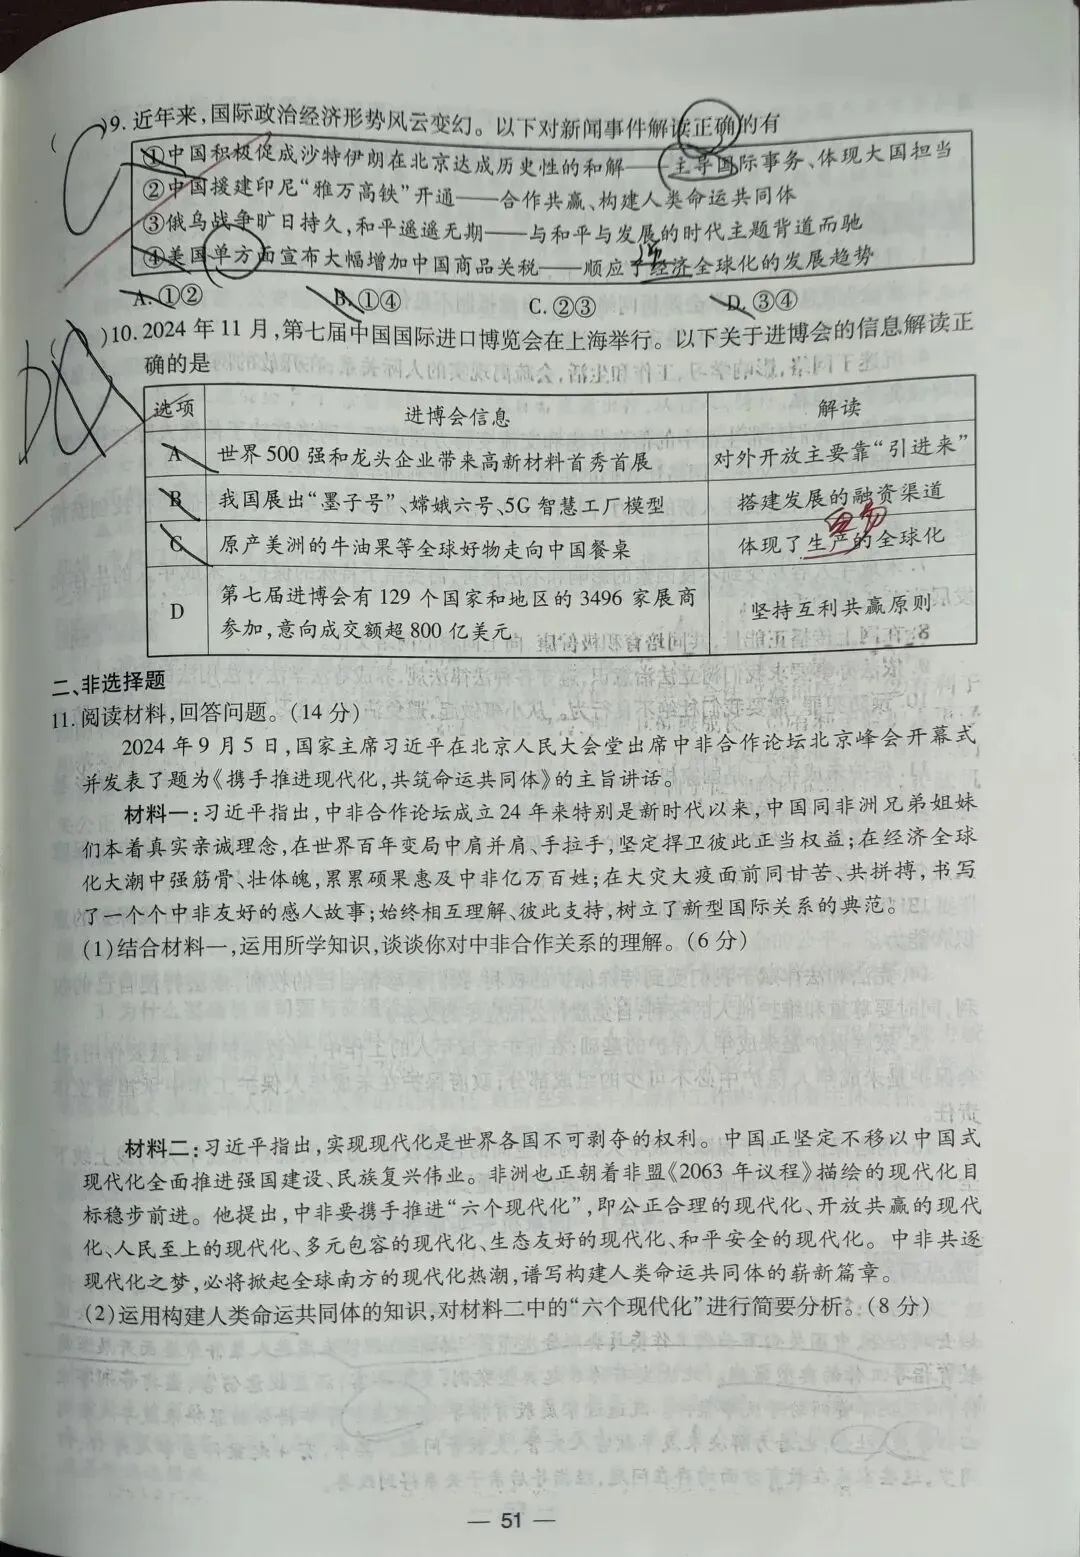 C
( )9.近年来,国际政治经济形势风云变幻。以下对新闻事件解读正确的有
①中国积极促成沙特伊朗在北京达成历史性的和解——主导国际事务、体现大国担当
②中国援建印尼“雅万高铁”开通——合作共赢、构建人类命运共同体
③俄乌战争旷日持久,和平遥遥无期——与和平与发展的时代主题背道而驰
④美国单方面宣布大幅增加中国商品关税——顺应了经济全球化的发展趋势
A.①② B.①④ C.②③ D.③④
D
( )10.2024年11月,第七届中国国际进口博览会在上海举行。以下关于进博会的信息解读正
确的是
选项 进博会信息 解读
A 世界500强和龙头企业带来高新材料首秀首展 对外开放主要靠“引进来”
B 我国展出“墨子号”、嫦娥六号、5G智慧工厂模型 搭建发展的融资渠道
贸易
C 原产美洲的牛油果等全球好物走向中国餐桌 体现了生产的全球化
D 第七届进博会有129个国家和地区的3496家展商 坚持互利共赢原则
参加,意向成交额超800亿美元
二、非选择题
11.阅读材料,回答问题。(14分)
2024年9月5日,国家主席习近平在北京人民大会堂出席中非合作论坛北京峰会开幕式
并发表了题为《携手推进现代化,共筑命运共同体》的主旨讲话。
材料一:习近平指出,中非合作论坛成立24年来特别是新时代以来,中国同非洲兄弟姐妹
们本着真实亲诚理念,在世界百年变局中肩并肩、手拉手,坚定捍卫彼此正当权益;在经济全球
化大潮中强筋骨、壮体魄,累累硕果惠及中非亿万百姓;在大灾大疫面前同甘苦、共拼搏,书写
了一个个中非友好的感人故事;始终相互理解、彼此支持,树立了新型国际关系的典范。
(1)结合材料一,运用所学知识,谈谈你对中非合作关系的理解。(6分)
材料二:习近平指出,实现现代化是世界各国不可剥夺的权利。中国正坚定不移以中国式
现代化全面推进强国建设、民族复兴伟业。非洲也正朝着非盟《2063年议程》描绘的现代化目
标稳步前进。他提出,中非要携手推进“六个现代化”,即公正合理的现代化、开放共赢的现代
化、人民至上的现代化、多元包容的现代化、生态友好的现代化、和平安全的现代化。中非共逐
现代化之梦,必将掀起全球南方的现代化热潮,谱写构建人类命运共同体的崭新篇章。
(2)运用构建人类命运共同体的知识,对材料二中的“六个现代化”进行简要分析。(8分)
— 51 —